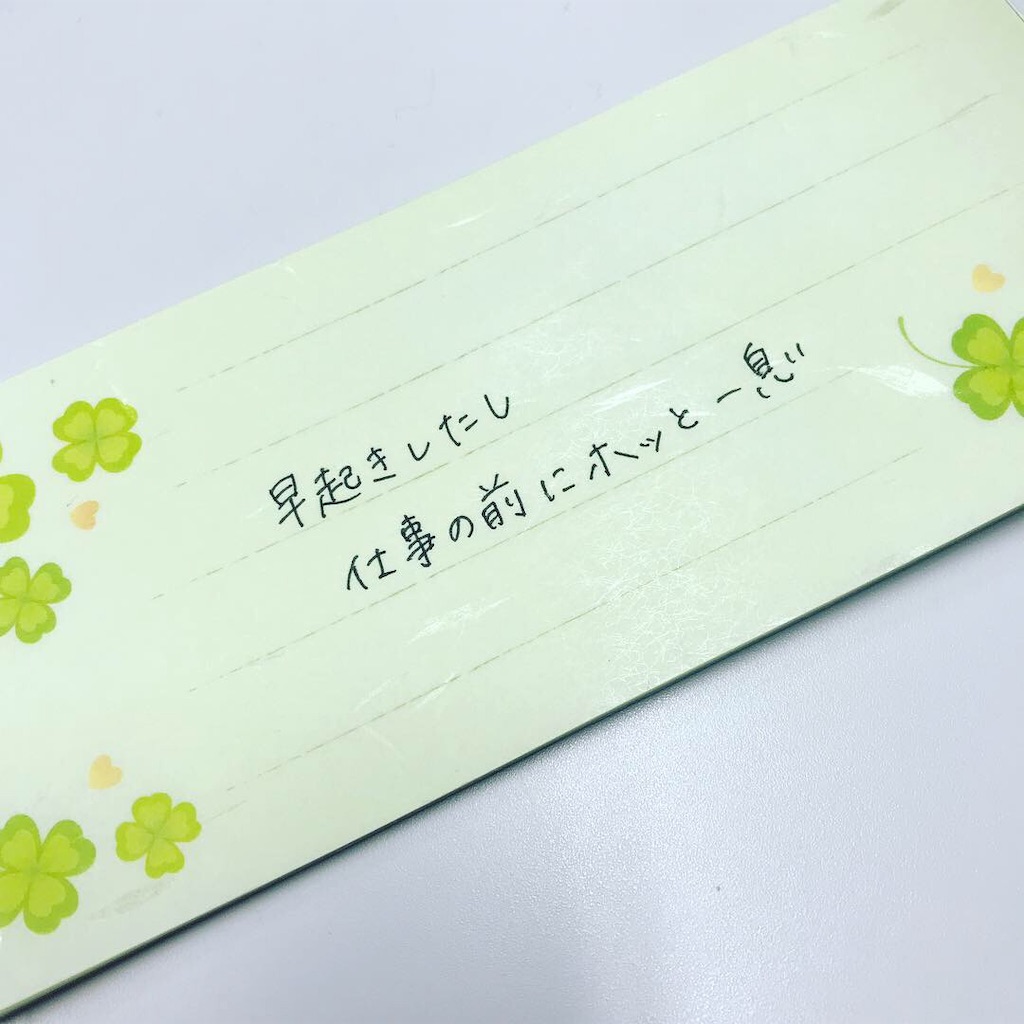 早起きしたし
仕事の前にホッと一息